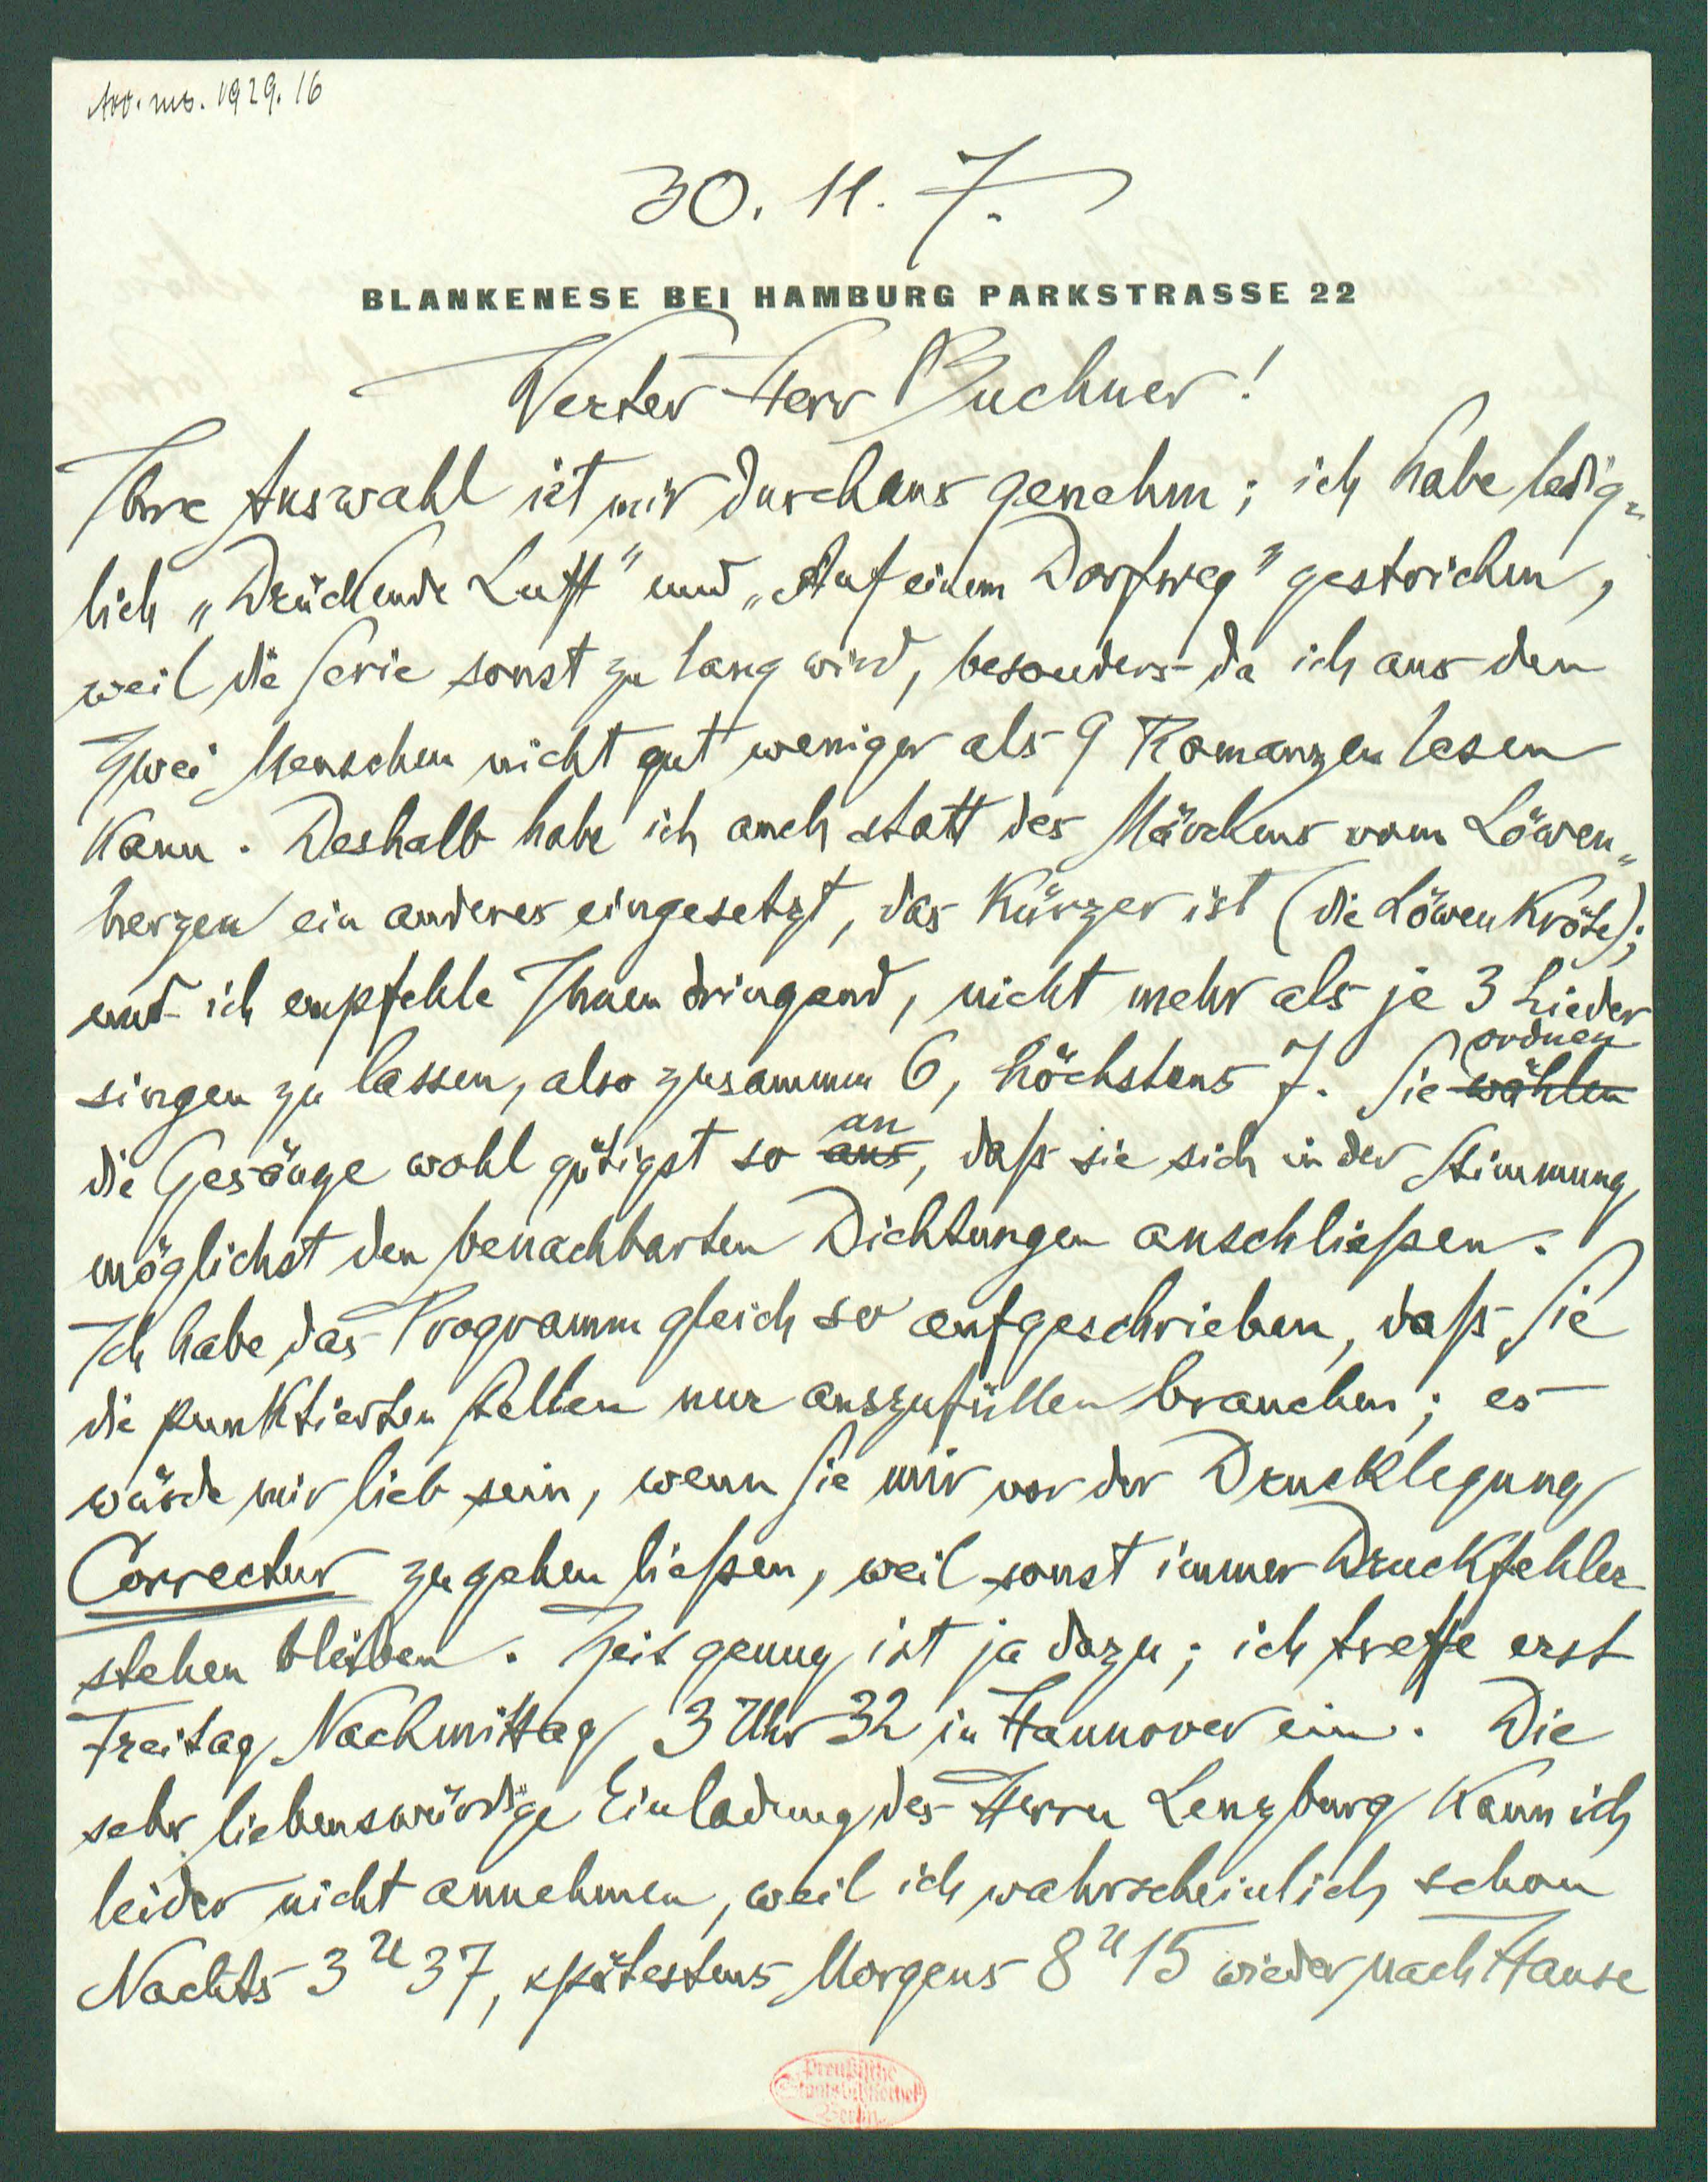 Acc. ms. 1929. 16
30. 11. 7.
BLANKENESE BEI HAMBURG PARKSTRASSE 22
Werter Herr Buchner!
Ihre Auswahl ist mir durchaus genehm; ich habe ledig-
lich „Drückende Luft" und „Auf einem Dorfweg" gestrichen,
weil die Serie sonst zu lang wird, besonders da ich aus den
Zwei Menschen nicht gut weniger als 9 Romanzen lesen
kann. Deshalb habe ich auch statt des Märchens vom Löwen-
herzen ein anderes eingesetzt, das kürzer ist (die Löwenkröte);
und ich empfehle Ihnen dringend, nicht mehr als je 3 Lieder
ordnen
singen zu lassen, also zusammen 6, höchstens 7. Sie wählen
an
die Gesänge wohl gütigst so aus, daß sie sich in der Stimmung
möglichst den benachbarten Dichtungen anschließen.
Ich habe das Programm gleich so aufgeschrieben, daß Sie
die punktierten Stellen nur auszufüllen brauchen; es
würde mir lieb sein, wenn Sie mir vor der Drucklegung
Correctur zugehen ließen, weil sonst immer Druckfehler
stehen bleiben. Zeit genug ist ja dazu; ich treffe erst
Freitag Nachmittag 3 Uhr 32 in Hannover ein. Die
sehr liebenswürdige Einladung des Herrn Lenzburg kann ich
leider nicht annehmen, weil ich wahrscheinlich schon
Nachts 3 U 37, spätestens Morgens 8 U 15 wieder nach Hause
Preußische
Staatsbibliothek
Berlin